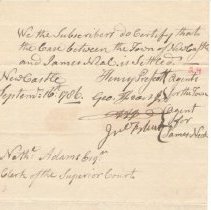 We the Subscribers do Certify that
the Case between the Town of New Castle
and James Neal is Settled
New Castle Henry Prescott agents
Septemr 16th 1786. Geo. Frost Jr for the Town
agent
for
James Neal
Nathl. Adams Esqr.
Clark of the Superior Court